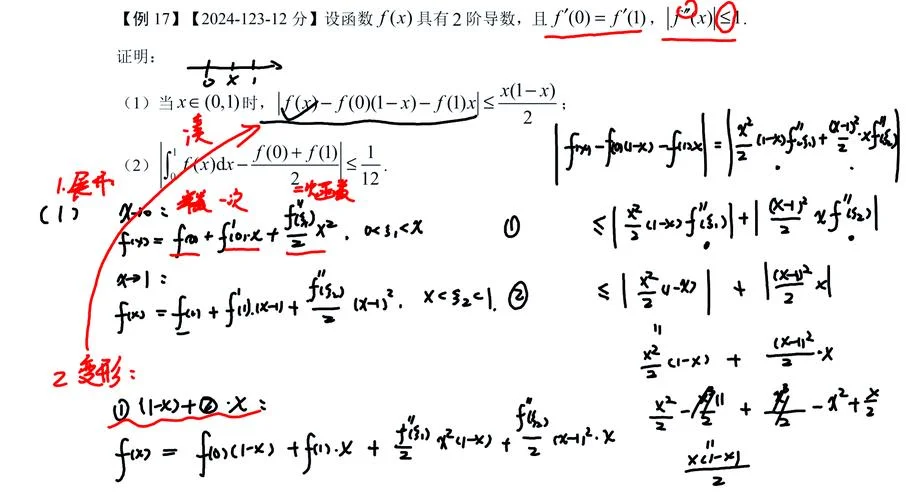 【例 17】【2024-123-12 分】设函数 f(x) 具有 2 阶导数，且 f′(0) = f′(1)，|f″(x)| ≤ 1.
证明：
0 x 1
（1）当 x∈(0,1) 时，|f(x) − f(0)(1−x) − f(1)x| ≤ x(1−x)/2；
（2）|∫₀¹ f(x)dx − (f(0)+f(1))/2| ≤ 1/12.
1.展开
(1) x→0： 一次 二次函数
f(x) = f(0) + f′(0)·x + f″(ξ₁)/2 x², 0<ξ₁<x ①
x→1：
f(x) = f(1) + f′(1)·(x−1) + f″(ξ₂)/2 (x−1)², x<ξ₂<1. ②
2 变形：
①(1−x)+②·x：
f(x) = f(0)(1−x) + f(1)·x + f″(ξ₁)/2 x²(1−x) + f″(ξ₂)/2 (x−1)²·x
|f(x)−f(0)(1−x)−f(1)x| = |x²/2 (1−x)f″(ξ₁) + (x−1)²/2·x f″(ξ₂)|
≤ |x²/2 (1−x)f″(ξ₁)| + |(x−1)²/2 x f″(ξ₂)|
≤ |x²/2 (1−x)| + |(x−1)²/2 x|
=
x²/2 (1−x) + (x−1)²/2·x
=
x²/2 − x³/2 + x³/2 − x² + x/2
=
x(1−x)/2